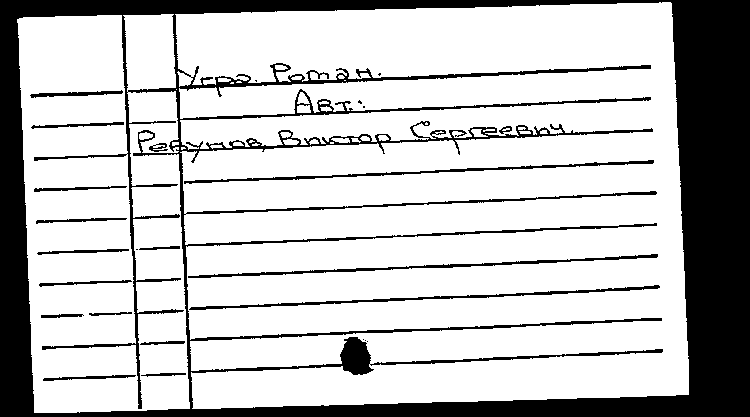 Угра. Роман.
Авт.:
Ревунов, Виктор Сергеевич.